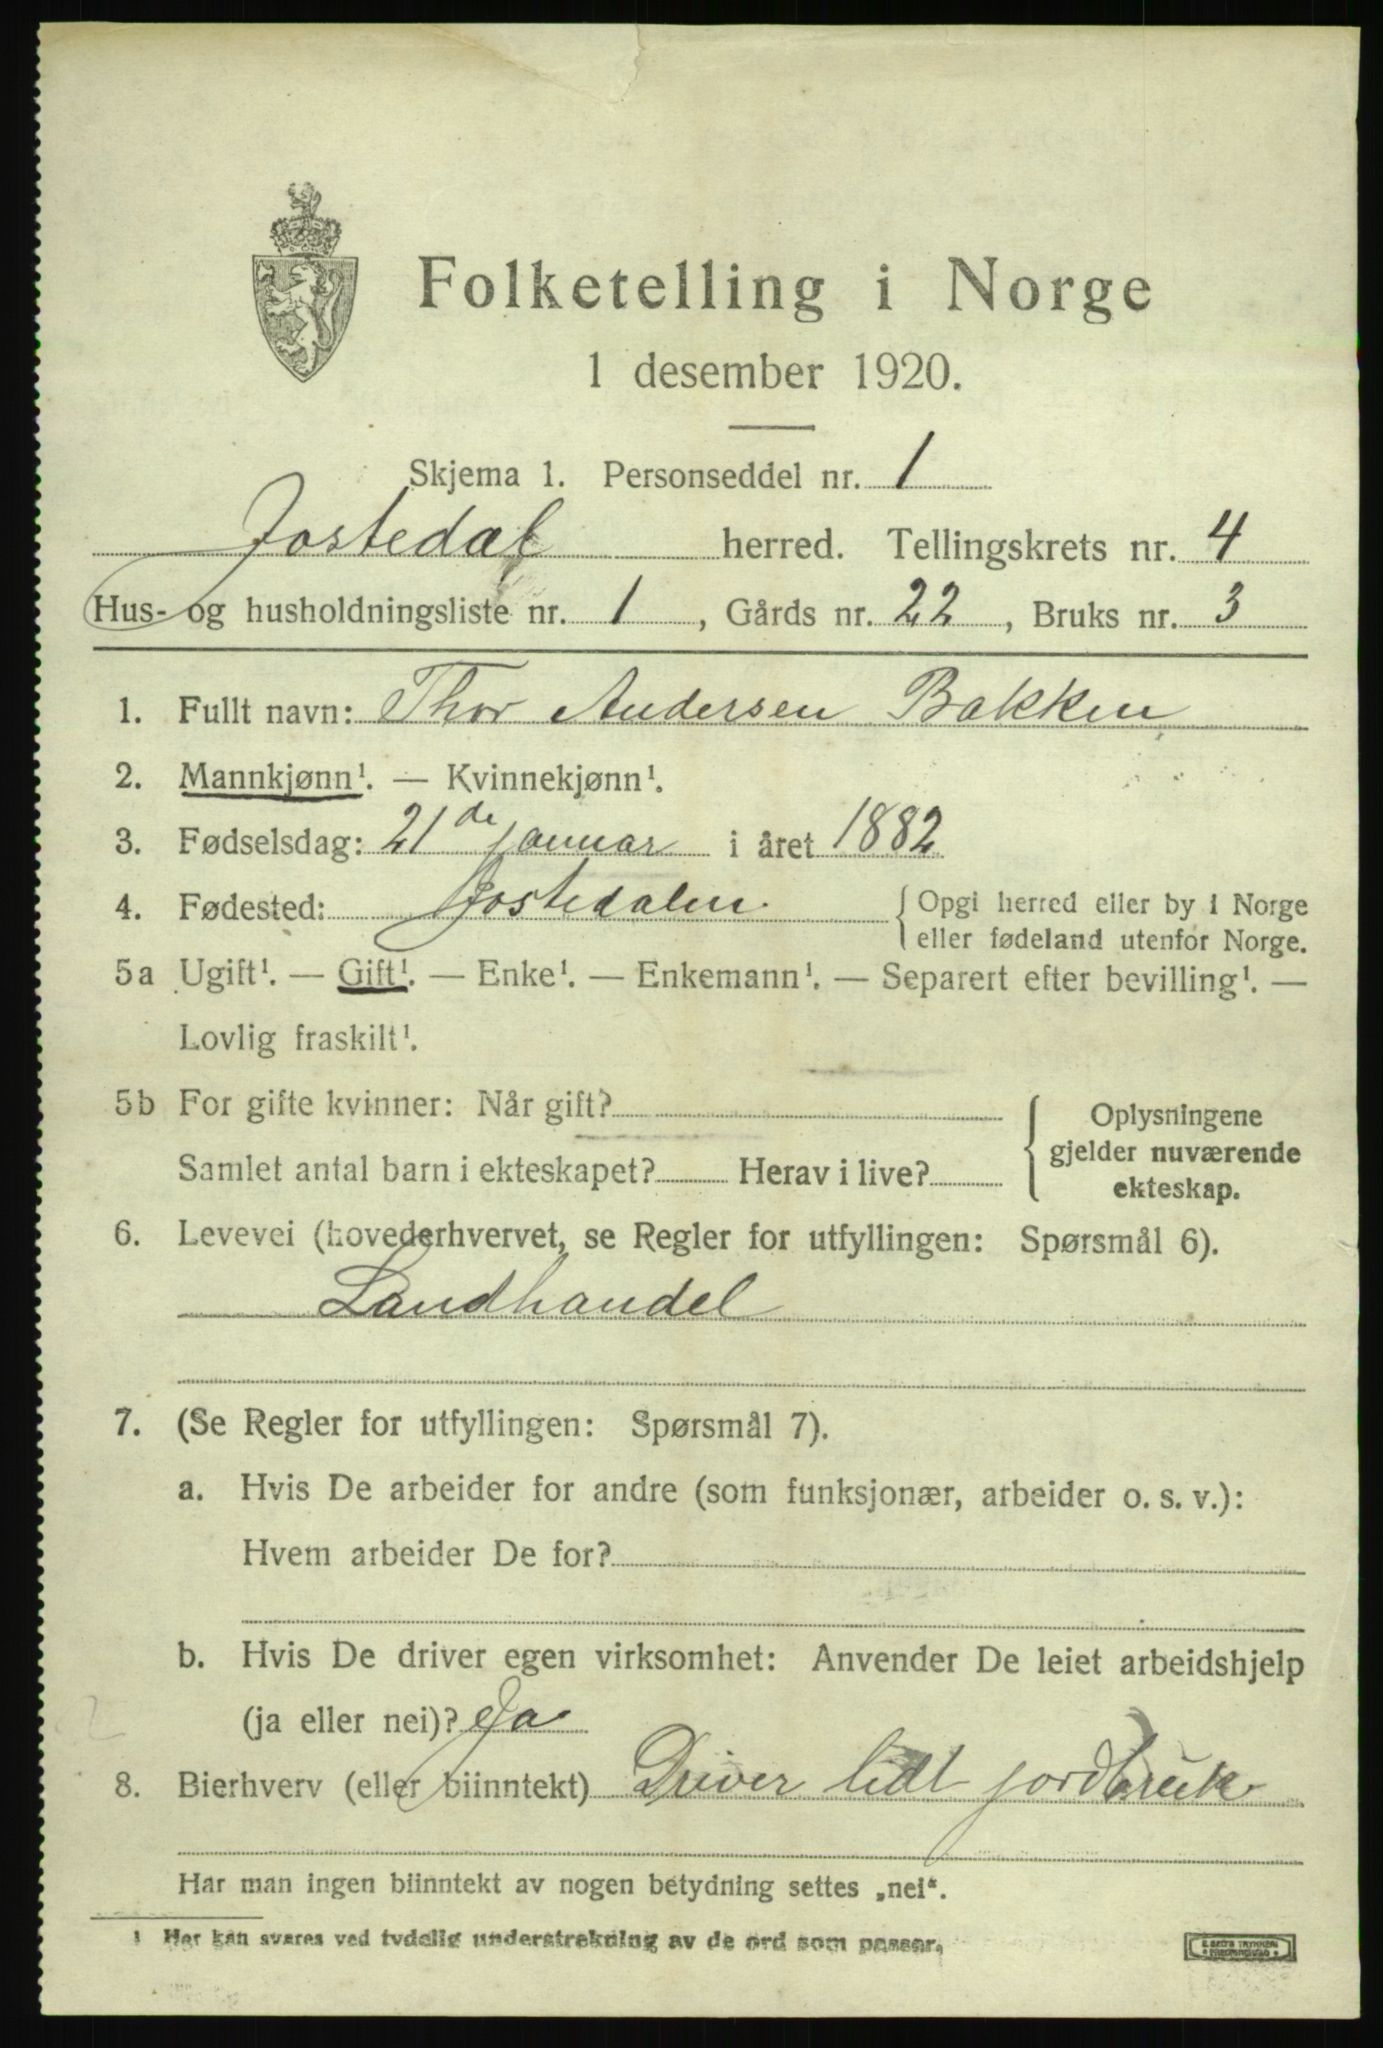 Folketelling i Norge
1 desember 1920.
Skjema 1. Personseddel nr. 1
Jostedal herred. Tellingskrets nr. 4
Hus- og husholdningsliste nr. 1, Gårds nr. 22, Bruks nr. 3
1. Fullt navn: Thor Andersen Bakken
2. Mannkjønn¹. — Kvinnekjønn¹.
3. Fødselsdag: 21de januar i året 1882
4. Fødested: Jostedalen. { Opgi herred eller by i Norge
eller fødeland utenfor Norge.
5a Ugift¹. — Gift¹. — Enke¹. — Enkemann¹. — Separert efter bevilling¹. —
Lovlig fraskilt¹.
5b For gifte kvinner: Når gift?
Samlet antal barn i ekteskapet? Herav i live?
{ Oplysningene
gjelder nuværende
ekteskap.
6. Levevei (hovederhvervet, se Regler for utfyllingen: Spørsmål 6).
Landhandel
7. (Se Regler for utfyllingen: Spørsmål 7).
a. Hvis De arbeider for andre (som funksjonær, arbeider o. s. v.):
Hvem arbeider De for?
b. Hvis De driver egen virksomhet: Anvender De leiet arbeidshjelp
(ja eller nei)? Ja
8. Bierhverv (eller biinntekt) Driver lidt jordbruk
Har man ingen biinntekt av nogen betydning settes „nei“.
1 Her kan svares ved tydelig understrekning av de ord som passer.